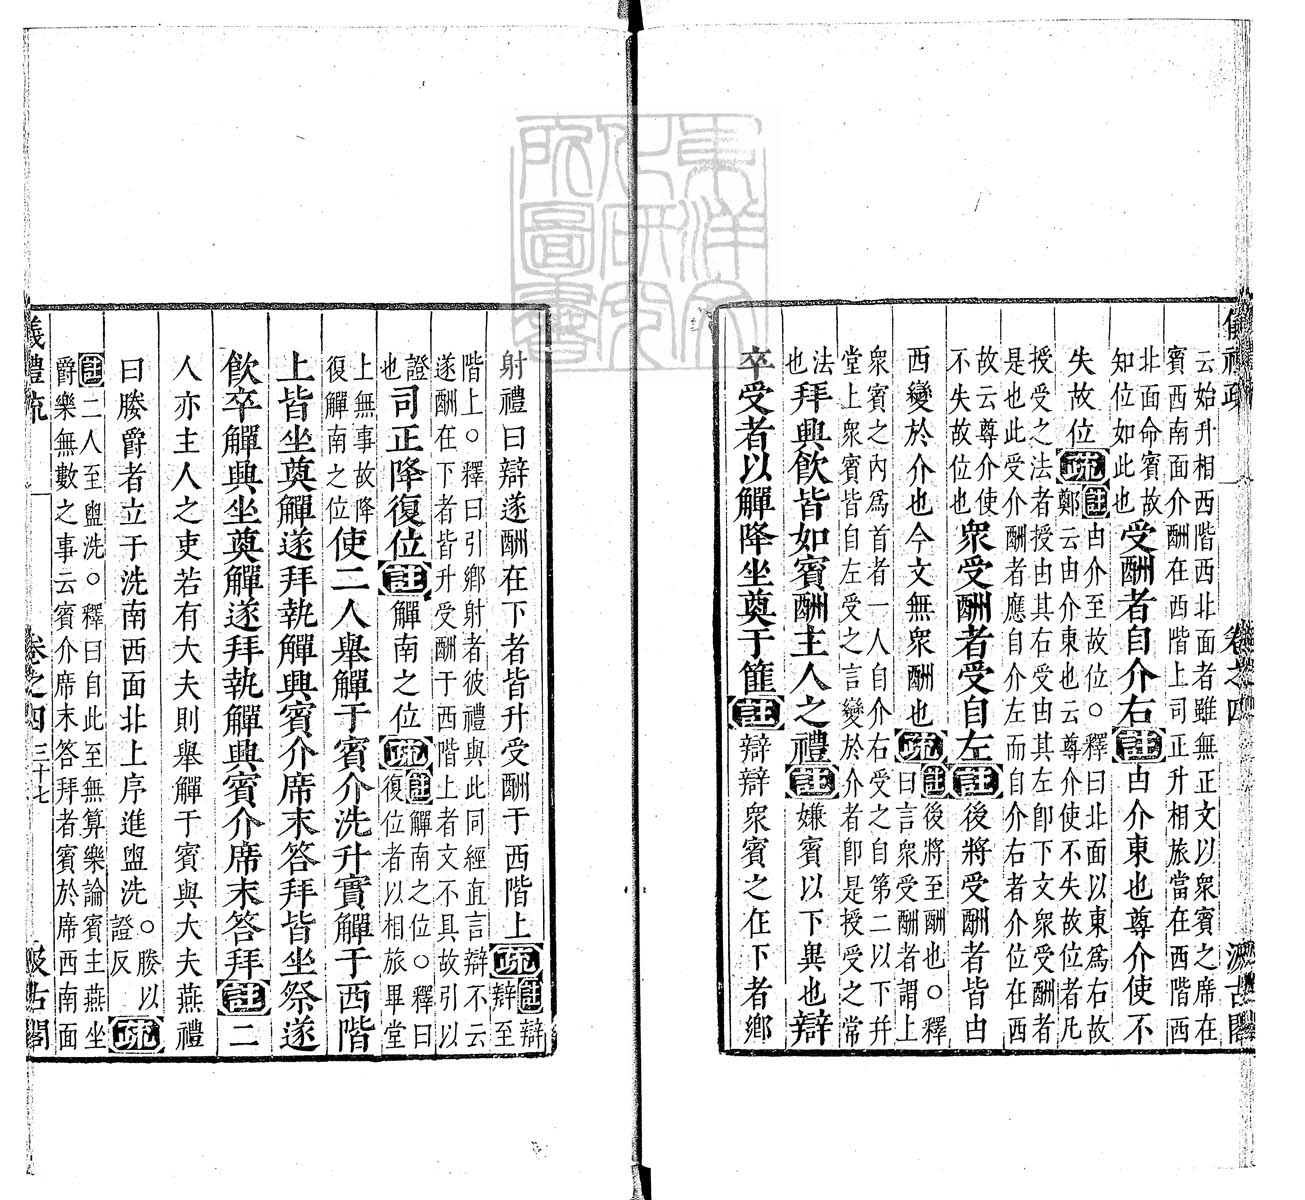 儀禮疏 卷之四 汲古閣
云始升相西階西北面者雖無正文以衆賓之席在
賓西南面介酬在西階上司正升相旅當在西階西
北面命賓故
知位如此也
受酬者自介右註由介東也尊介使不
失故位疏
註由介至故位○釋曰北面以東爲右故
鄭云由介東也云尊介使不失故位者凡
授受之法者授由其右受由其左卽下文衆受酬者
是也此受介酬者應自介左而自介右者介位在西
故云尊介使
不失故位也
衆受酬者受自左註後將受酬者皆由
西變於介也今文無衆酬也疏
註後將至酬也○釋
曰言衆受酬者謂上
衆賓之內爲首者一人自介右受之自第二以下幷
堂上衆賓皆自左受之言變於介者卽是授受之常
法
也
拜興飮皆如賓酬主人之禮註嫌賓以下異也辯
卒受者以觶降坐奠于篚註辯辯衆賓之在下者鄉
射禮曰辯遂酬在下者皆升受酬于西階上疏
註辯
辯至
階上○釋曰引鄉射者彼禮與此同經直言辯不云
遂酬在下者皆升受酬于西階上者文不具故引以
證
也
司正降復位註觶南之位疏
註觶南之位○釋曰
復位者以相旅畢堂
上無事故降
復觶南之位
使二人舉觶于賓介洗升實觶于西階
上皆坐奠觶遂拜執觶興賓介席末答拜皆坐祭遂
飮卒觶興坐奠觶遂拜執觶興賓介席末答拜註二
人亦主人之吏若有大夫則舉觶于賓與大夫燕禮
曰媵爵者立于洗南西面北上序進盥洗
○媵以
證反
疏
註二人至盥洗○釋曰自此至無算樂論賓主燕坐
爵樂無數之事云賓介席末答拜者賓於席西南面
儀禮疏 卷之四 三十七 汲古閣
東洋文化研究所圖書